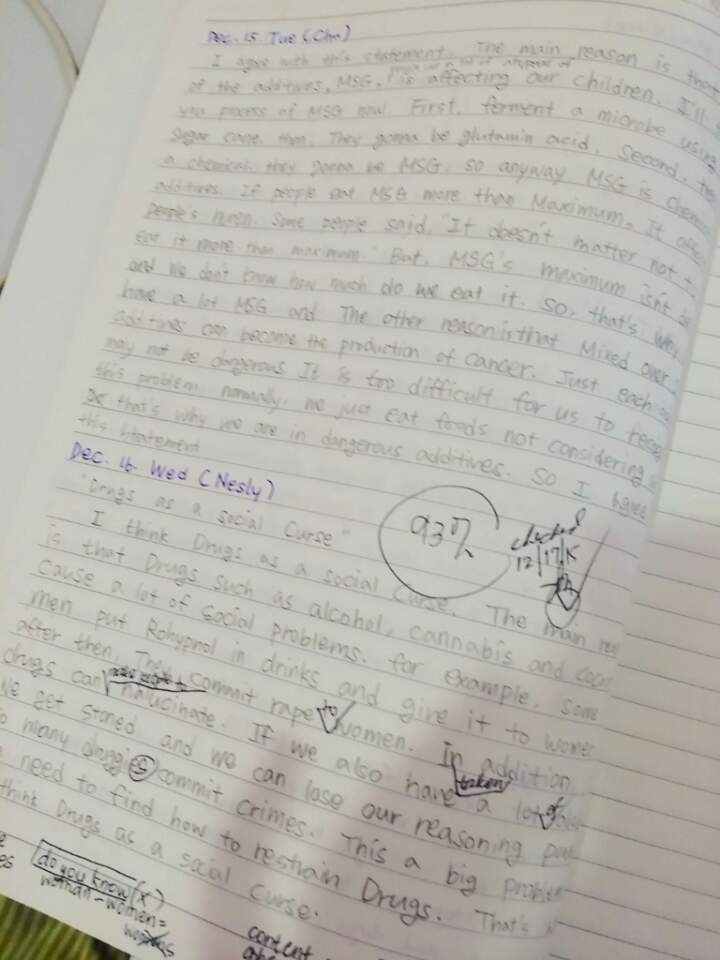 Dec. 15. Tue (Cha)
I agree with this statement. The main reason is that
of the additives, MSG, is affecting our children. I'll
you process of MSG now. First, ferment a microbe using
Sugar cane, then, They gonna be glutamin acid. Second,
a chemical, they gonna be MSG. so anyway MSG is chemical
additives. If people eat MSG more than Maximum, It
people's Some people said, "It doesn't matter not
eat it more than maximum." But, MSG's maximum isn't
and we don't know how much do we eat it. So, that's why
have a lot MSG and The other reason is that Mixed over
additives can become the production of cancer. Just each
may not be dangerous. It is too difficult for us to
this problem. normally, we just eat foods not considering
that's why we are in dangerous additives. So I agree
this statement
Dec. 16. Wed (Nesly)
93%
checked
12/17/15
"Drugs as a social Curse"
I think Drugs as a social Curse. The main
is that Drugs such as alcohol, cannabis and
cause a lot of social problems. for example, some
men put Rohypnol in drinks and give it to
after then, They commit rape to women. In addition
drugs can halucinate. If we also have taken a lot of
we get stoned and we can lose our reasoning
many druggies commit crimes. This a big problem
need to find how to restrain Drugs. That's
think Drugs as a social curse.
do you know (x)
woman - women =
content